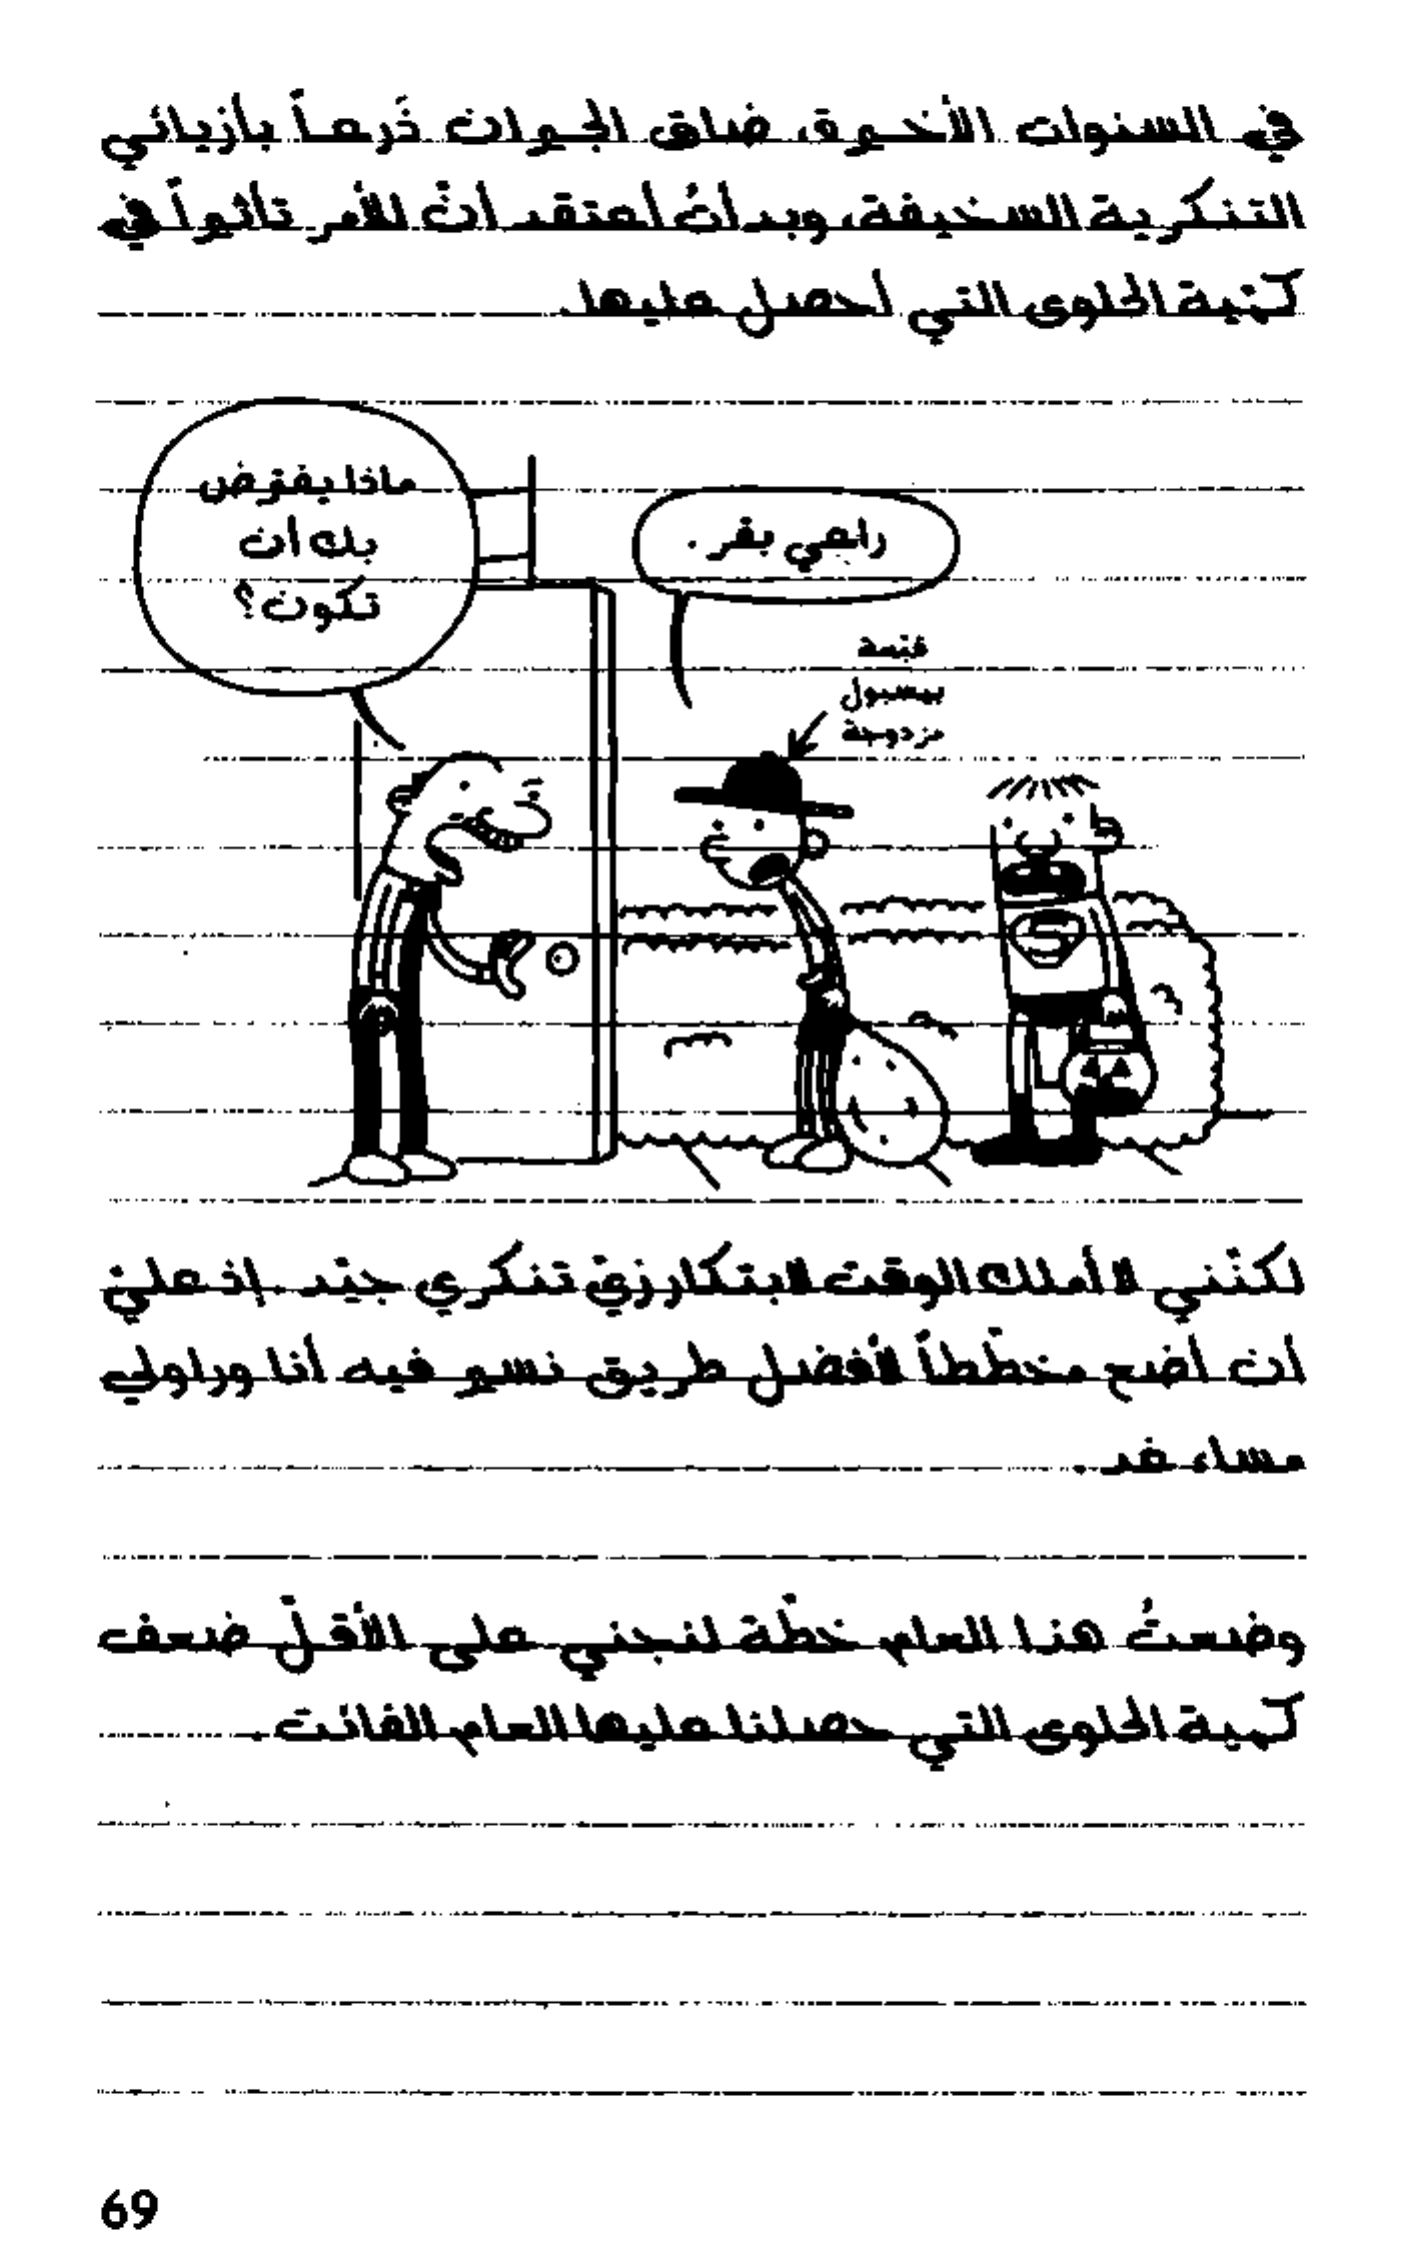 في السنوات الأخيرة، ضاق الجيران ذَرعاً بأزيائي
التنكرية السخيفة، وبدأتُ أعتقد أنّ للأمر تأثيراً في
كمّية الحلوى التي أحصل عليها.
ماذا يفترض
بك أن
تكون؟
راعي بقر.
قبّعة
بيسبول
مزدوجة
لكنّني لا أملك الوقت لابتكار زيّ تنكري جيّد. إذ عليّ
أن أضع مخطّطاً لأفضل طريق نسير فيه أنا وراولي
مساء غد.
وضعتُ هذا العام خطّة لنجني على الأقلّ ضعف
كمية الحلوى التي حصلنا عليها العام الفائت.
69